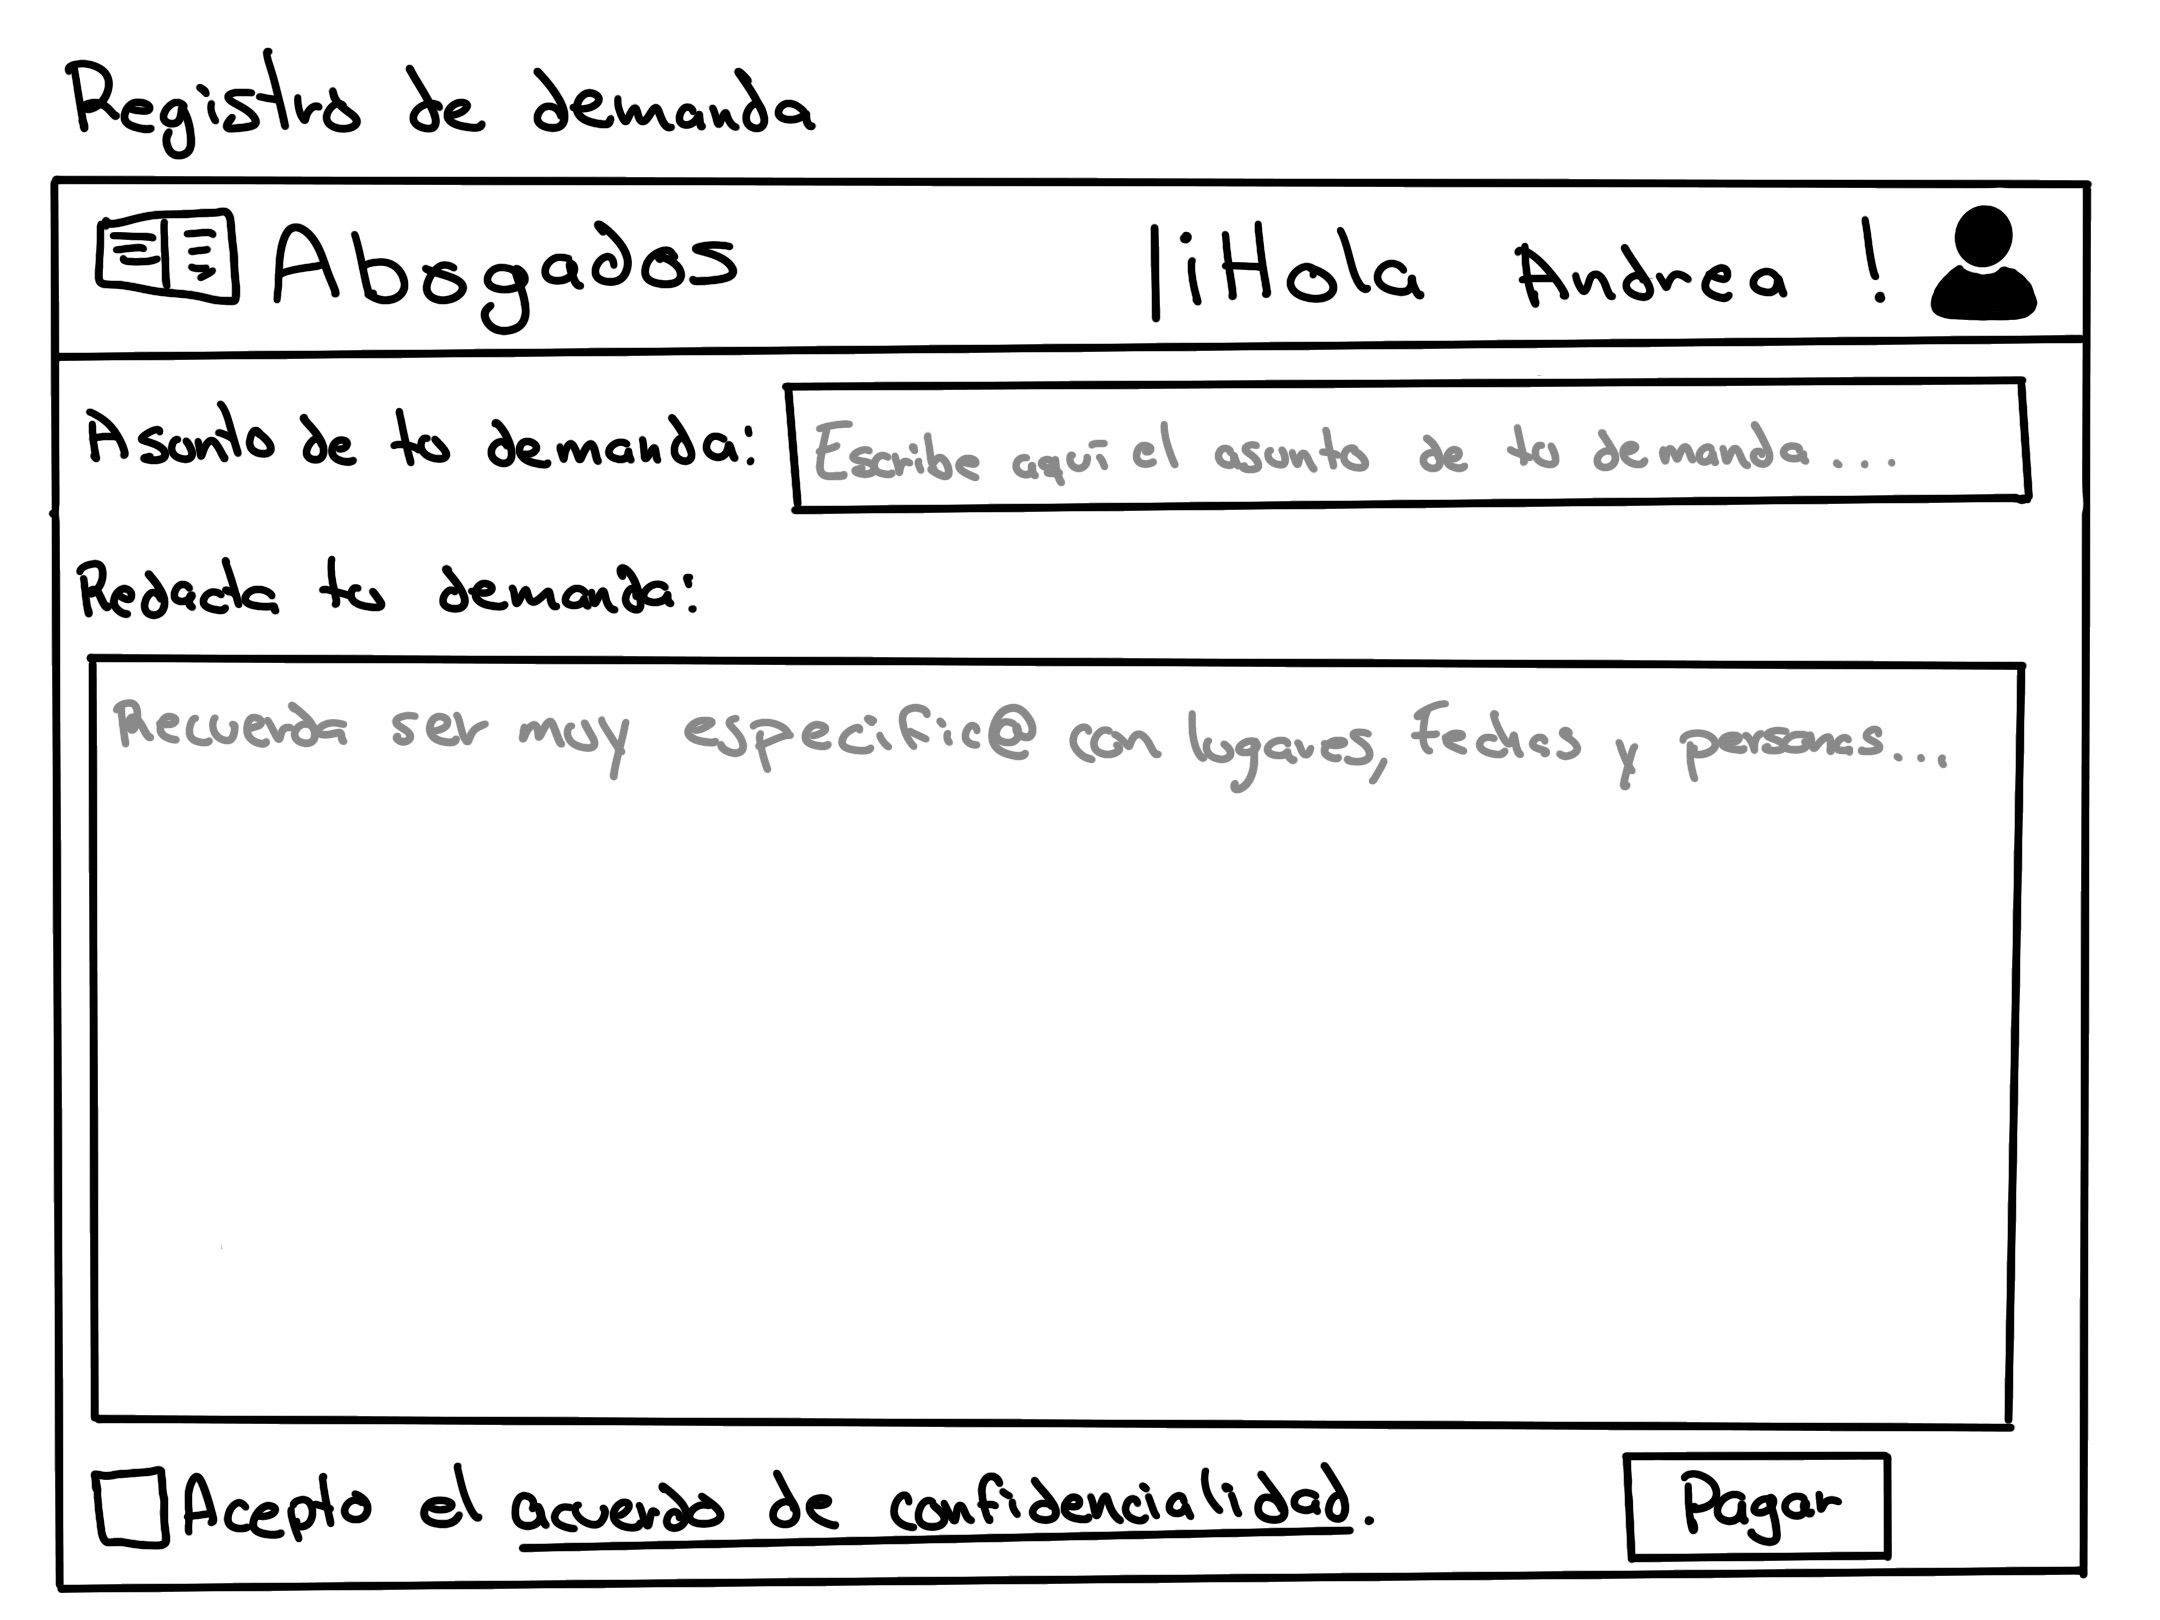 Registro de demanda
Abogados
|¡Hola Andrea !
Asunto de tu demanda:
Escribe aquí el asunto de tu demanda...
Redacta tu demanda:
Recuerda ser muy especific@ con lugares, fechas y personas...
Acepto el acuerdo de confidencialidad.
Pagar